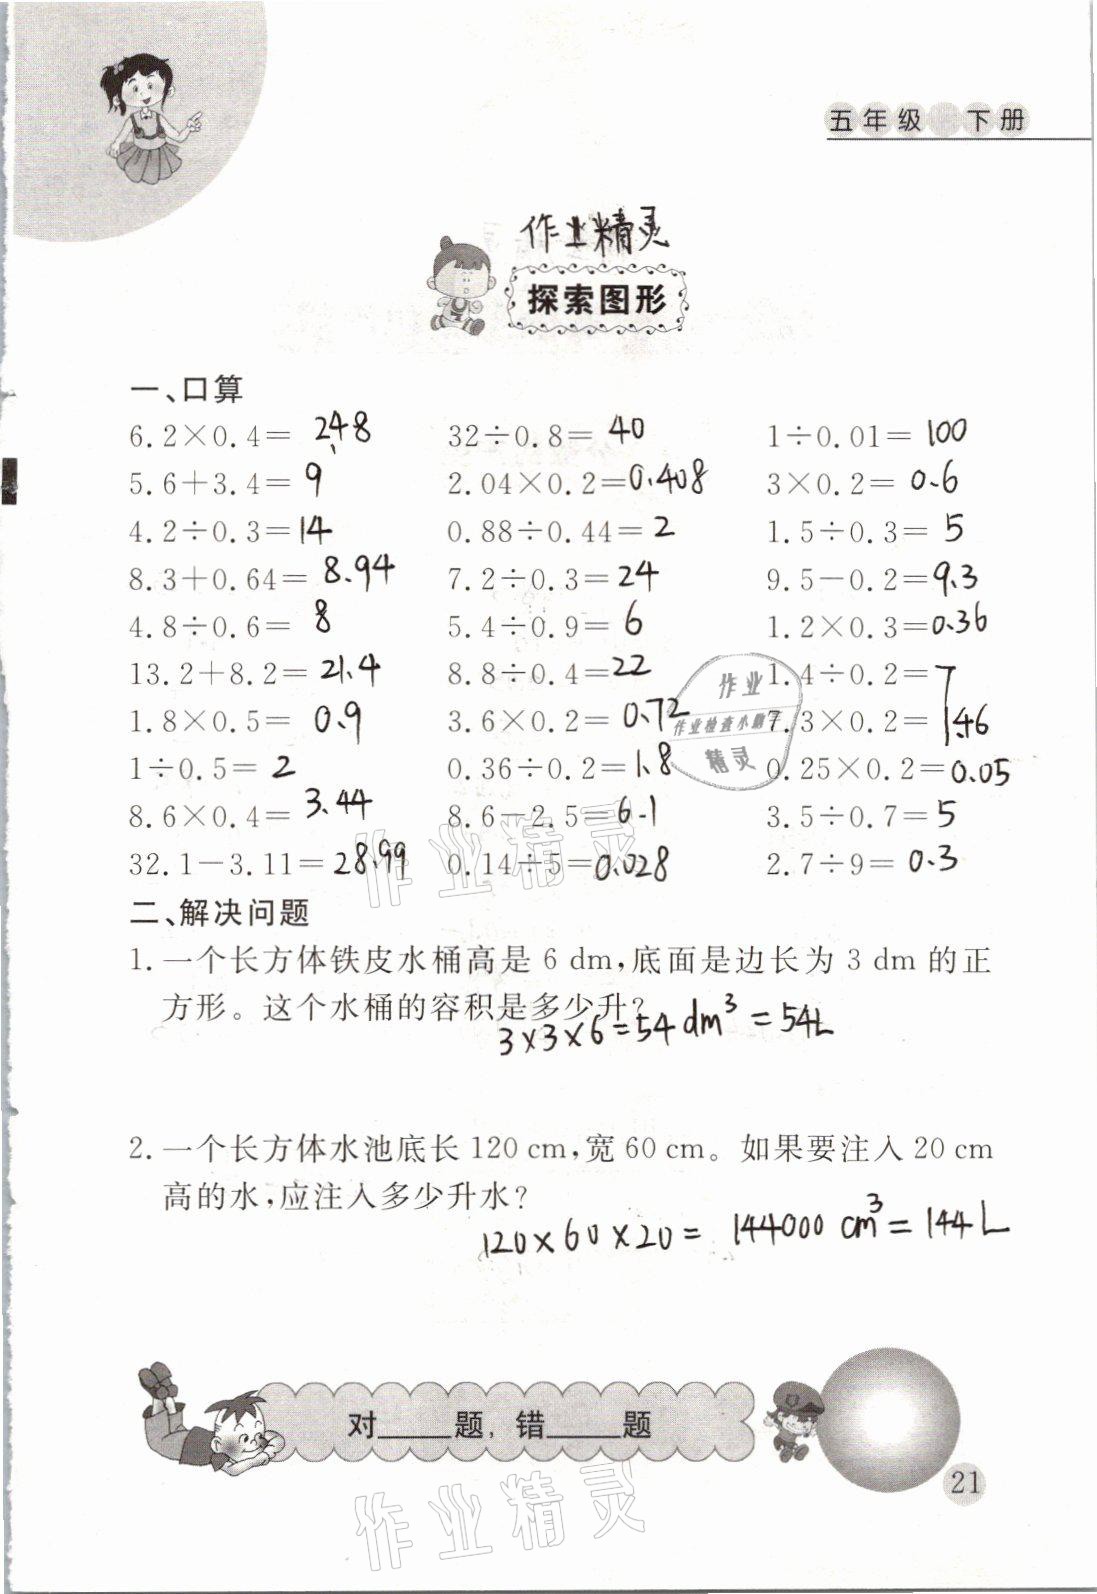 五年级 下册
作业精灵
探索图形
一、口算
6.2×0.4= 2.48 32÷0.8= 40 1÷0.01= 100
5.6+3.4= 9 2.04×0.2=0.408 3×0.2= 0.6
4.2÷0.3=14 0.88÷0.44= 2 1.5÷0.3= 5
8.3+0.64= 8.94 7.2÷0.3=24 9.5-0.2=9.3
4.8÷0.6= 8 5.4÷0.9= 6 1.2×0.3=0.36
13.2+8.2= 21.4 8.8÷0.4=22 1.4÷0.2=7
1.8×0.5= 0.9 3.6×0.2= 0.72 7.3×0.2= 1.46
1÷0.5= 2 0.36÷0.2=1.8 0.25×0.2=0.05
8.6×0.4= 3.44 8.6-2.5=6.1 3.5÷0.7=5
32.1-3.11=28.99 0.14÷5=0.028 2.7÷9= 0.3
作业
作业检查小助手
精灵
作业精灵
二、解决问题
1. 一个长方体铁皮水桶高是 6 dm,底面是边长为 3 dm 的正
方形。这个水桶的容积是多少升?
3×3×6=54 dm³=54L
2. 一个长方体水池底长 120 cm,宽 60 cm。如果要注入 20 cm
高的水,应注入多少升水?
120×60×20= 144000 cm³=144L
对_____题,错_____题
21
作业精灵